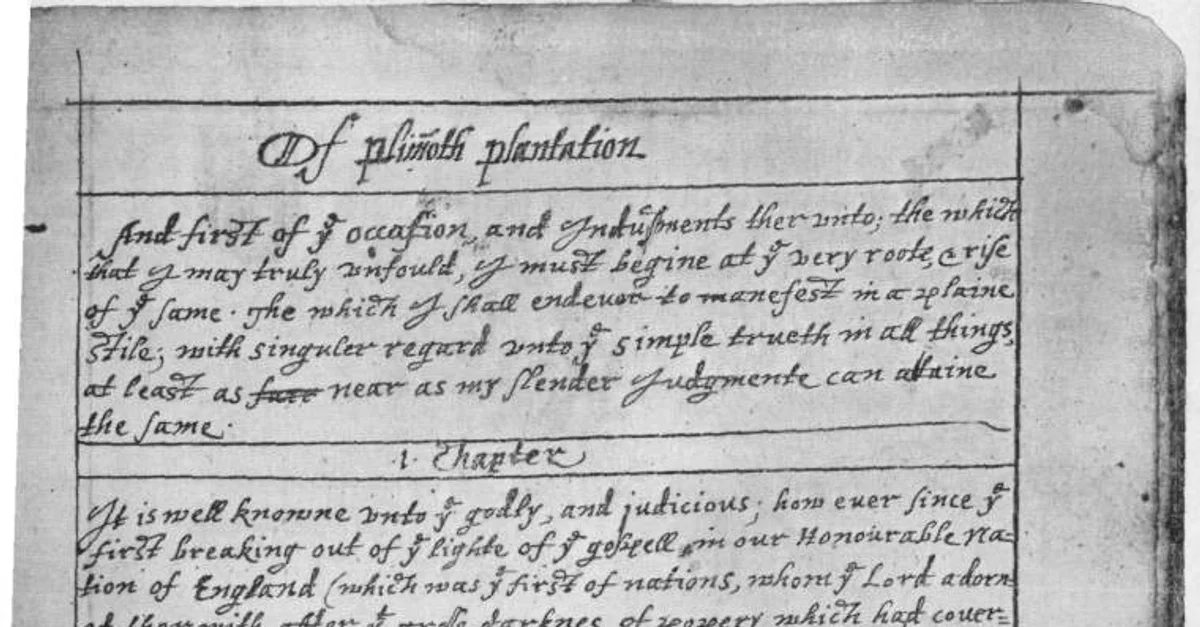 Of plim̃oth plantation
And first of yᵉ occasion, and Indusments ther vnto; the which
that I may truly vnfould, I must begine at yᵉ very roote, & rise
of yᵉ same. The which I shall endevor to manefest in a plaine
stile; with singuler regard vnto yᵉ simple trueth in all things,
at least as farr near as my slender Judgmente can attaine
the same.
.1. Chapter
It is well knowne vnto yᵉ godly, and judicious; how ever since yᵉ
first breaking out of yᵉ lighte of yᵉ gospell, in our Honourable Na=
tion of England (which was yᵉ first of nations, whom yᵉ Lord adorn-
ed ther with, after yᵉ grosse darknes of popery which had cover=